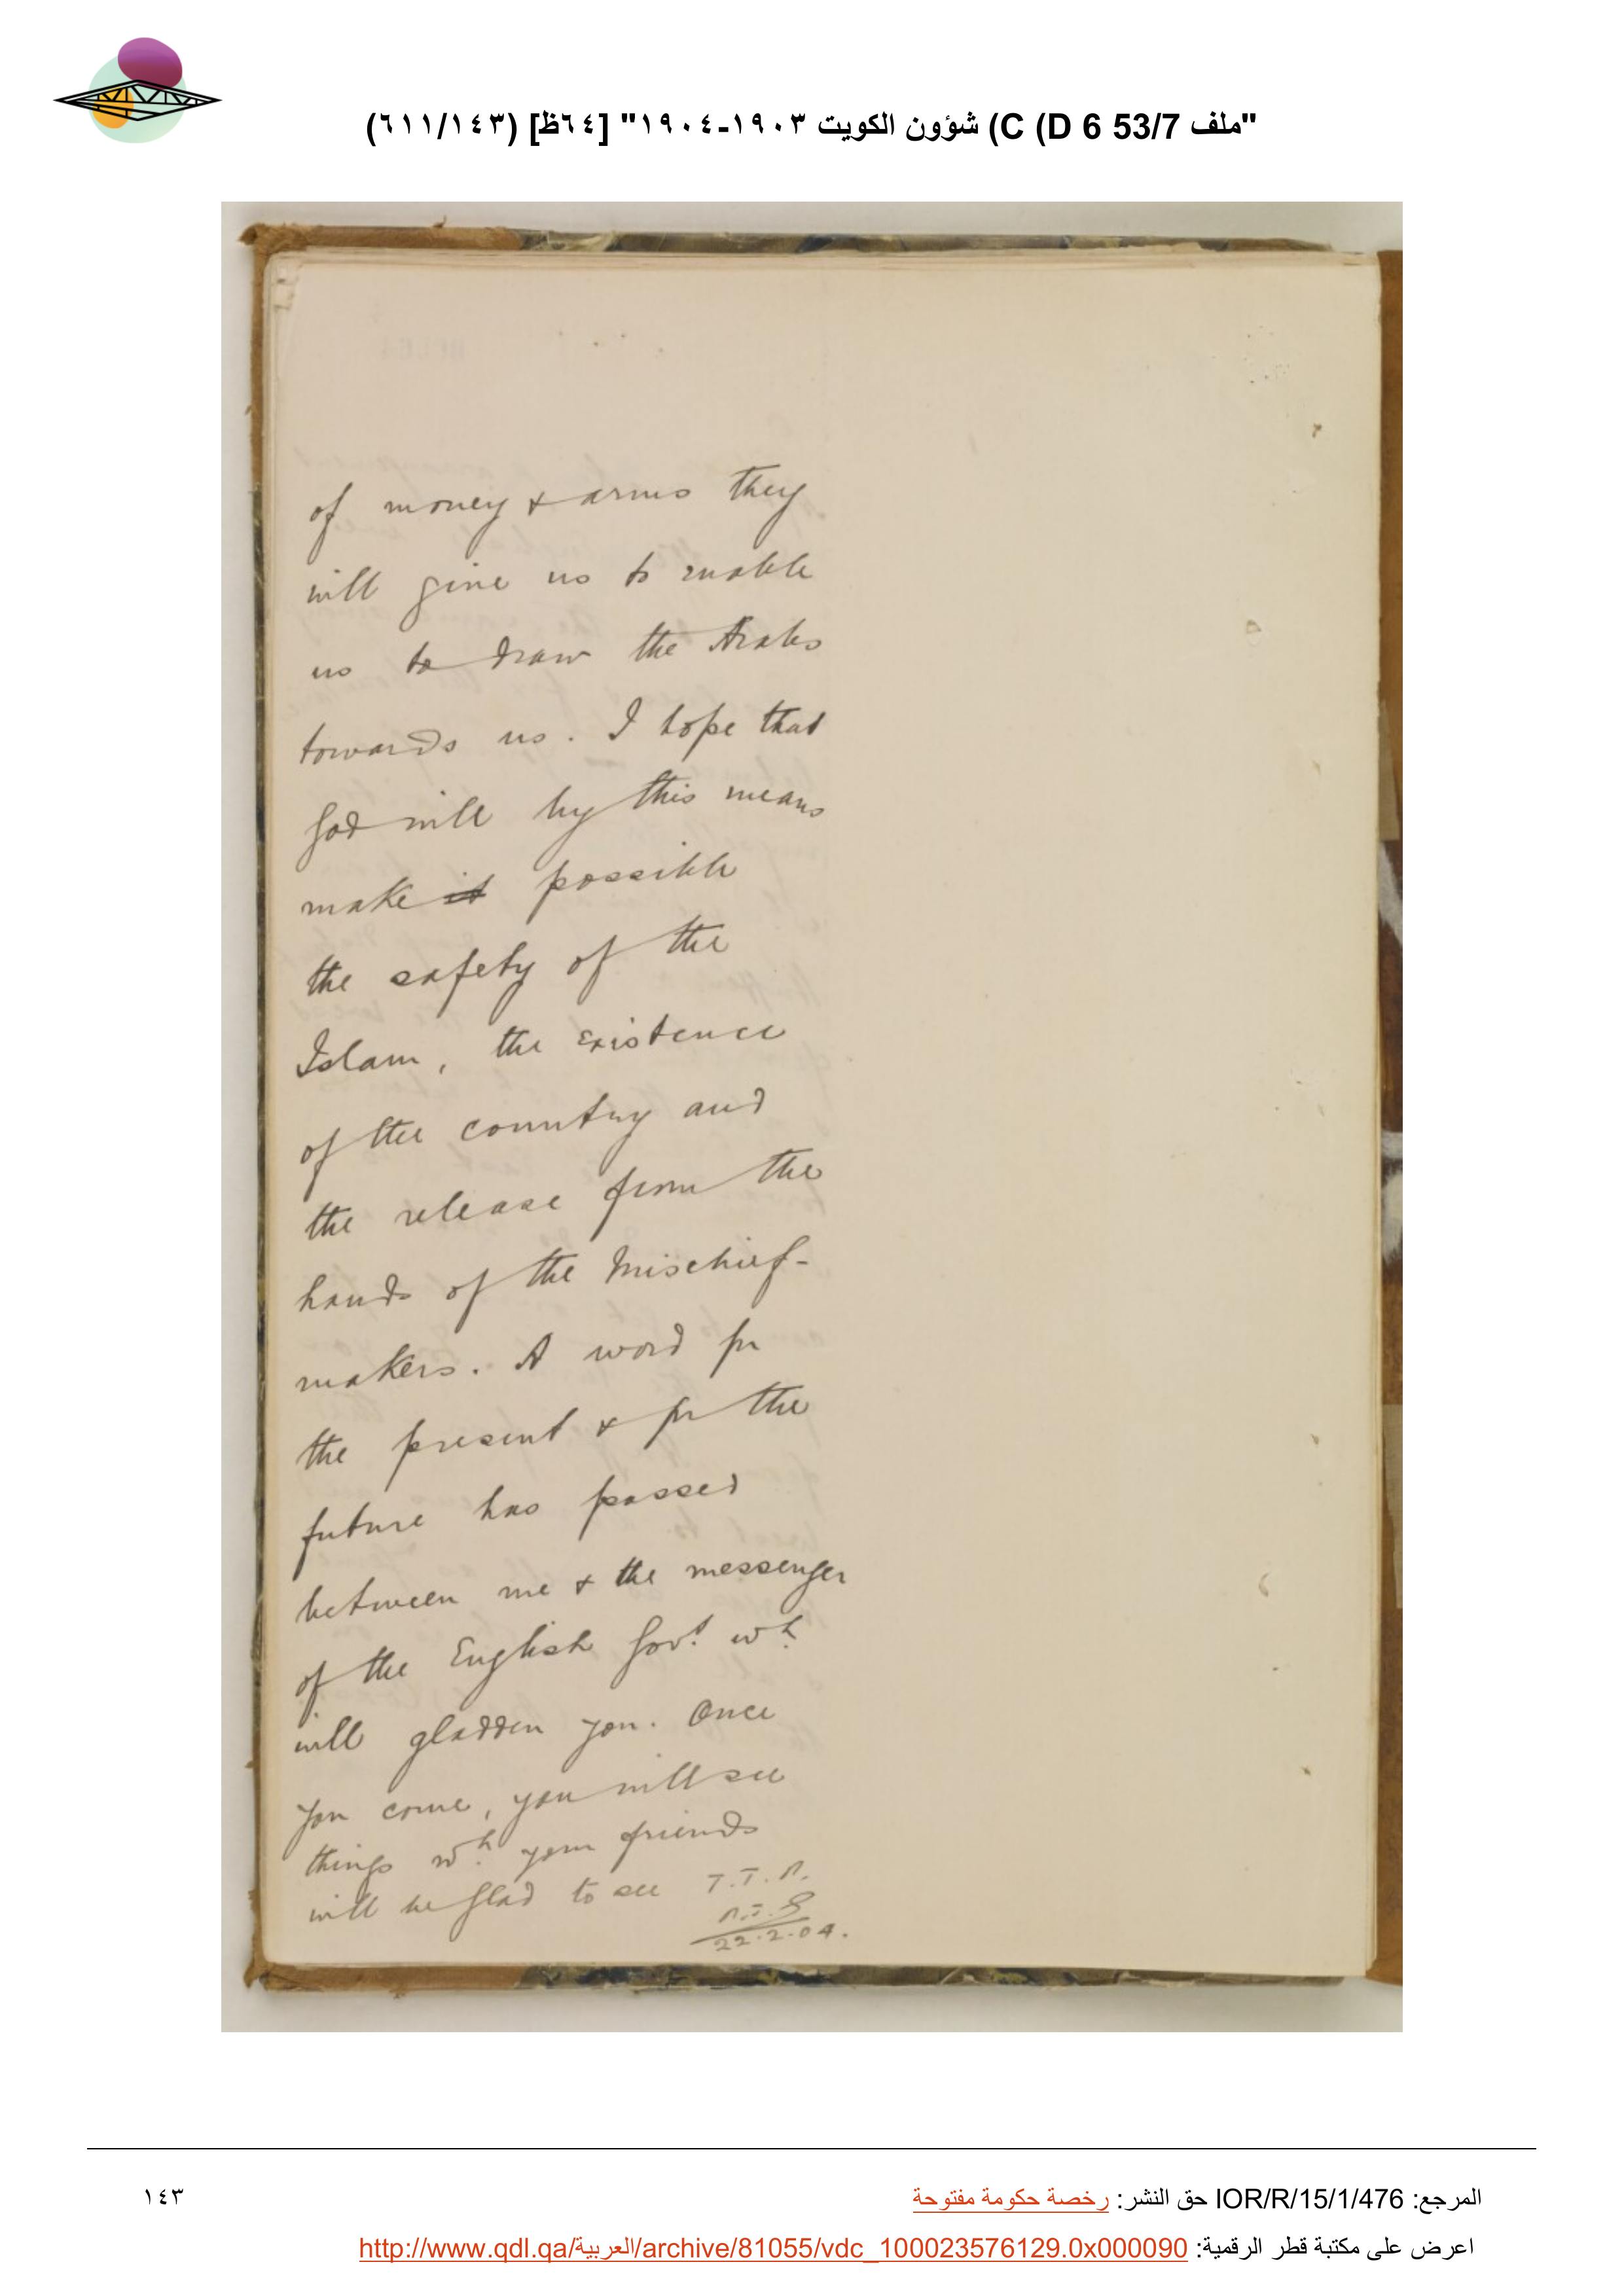 "ملف 53/7 C (D 6) شؤون الكويت ١٩٠٣-١٩٠٤" [٦٤ظ] (٦١١/١٤٣)
of money & arms they
will give us to enable
us to draw the Arabs
towards us. I hope that
God will by this means
make it possible
the safety of the
Islam, the existence
of the country and
the release from the
hands of the Mischief-
makers. A word for
the present & for the
future has passed
between me & the messenger
of the English Govt. wh.
will gladden you. Once
you come, you will see
things wh. your friends
will be glad to see T.T.A.
22.2.04.
المرجع: IOR/R/15/1/476 حق النشر: رخصة حكومة مفتوحة
١٤٣
اعرض على مكتبة قطر الرقمية: http://www.qdl.qa/العربية/archive/81055/vdc_100023576129.0x000090